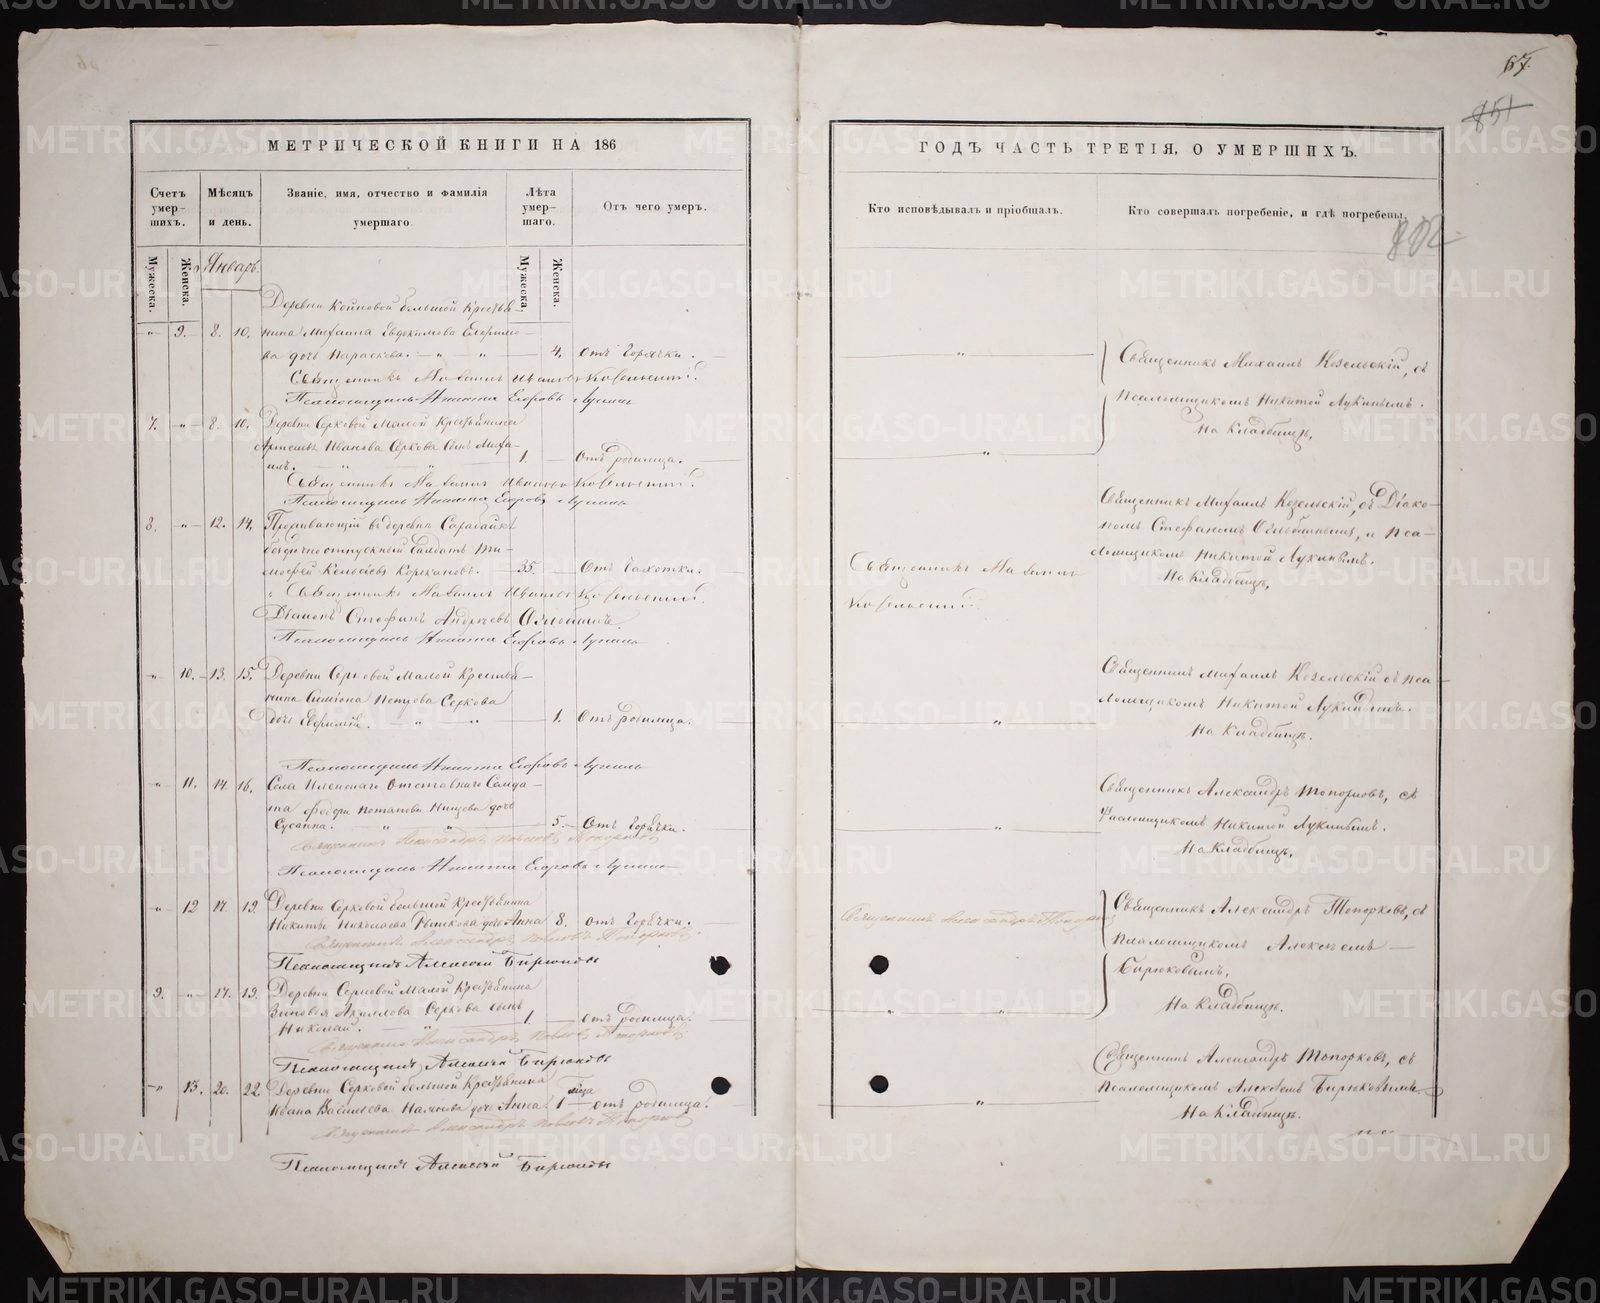 67.
851
МЕТРИЧЕСКОЙ КНИГИ НА 186
Счетъ умер-шихъ.
Мѣсяцъ и день.
Званіе, имя, отчество и фамилія умершаго.
Лѣта умер-шаго.
Отъ чего умеръ.
Мужеска.
Женска.
Январь.
Мужеска.
Женска.
Деревни большой Крестья-
" 9. 8. 10. нина Михаила Евдокимова
дочь Параскева. — " — " — 4. Отъ Горячки.
Священникъ Михаилъ Ивановъ Козельскій.
Псаломщикъ Никита Егоровъ Лукинъ
7. " 8. 10. Деревни Серковой Малой Крестьянина
Артемья Иванова Серкова сынъ Миха-
илъ. " " 1. Отъ родимца.
Священникъ Михаилъ Ивановъ Козельскій.
Псаломщикъ Никита Егоровъ Лукинъ
8. " 12. 14. Проживающій въ деревни
безсрочноотпускный Салдатъ Ти-
мофей 35. Отъ Чахотки.
Священникъ Михаилъ Ивановъ Козельскій.
Діаконъ Стефанъ Андреевъ
Псаломщикъ Никита Егоровъ Лукинъ
" 10. 13. 15. Деревни Серковой Малой Крестья-
нина Симіона Петрова Серкова
дочь Евфимія. " " 1. Отъ родимца.
Псаломщикъ Никита Егоровъ Лукинъ
" 11. 14. 16. Села Отставнаго Салда-
та Федора Потапова дочь
Сусанна. " " 5. Отъ Горячки.
Священникъ Александръ Павловъ Топорковъ
Псаломщикъ Никита Егоровъ Лукинъ
" 12 17. 19. Деревни Серковой большой Крестьянина
Никиты Николаева дочь Анна 8. отъ Горячки.
Священникъ Александръ Павловъ Топорковъ
Псаломщикъ Алексѣй Бирюковъ
9. " 17. 19. Деревни Серковой Малой Крестьянина
Зиновья Серкова сынъ
Николай. " 1. отъ родимца.
Священникъ Александръ Павловъ Топорковъ
Псаломщикъ Алексѣй Бирюковъ
" 13. 20. 22. Деревни Серковой большой Крестьянина
Ивана Васильева дочь Анна 1 отъ родимца.
Священникъ Александръ Павловъ Топорковъ
Псаломщикъ Алексѣй Бирюковъ
ГОДЪ ЧАСТЬ ТРЕТІЯ, О УМЕРШИХЪ.
Кто исповѣдывалъ и пріобщалъ.
Кто совершалъ погребеніе, и гдѣ погребены.
802.
"
Священникъ Михаилъ Козельскій, съ
Псаломщикомъ Никитой Лукинымъ.
На Кладбищѣ,
"
Священникъ Михаилъ Козельскій, съ Діако-
номъ Стефаномъ и Пса-
ломщикомъ Никитой Лукинымъ.
На Кладбищѣ,
Священникъ Михаилъ
Козельскій.
Священникъ Михаилъ Козельскій съ Пса-
ломщикомъ Никитой Лукинымъ.
На Кладбищѣ.
"
Священникъ Александръ Топорковъ, съ
Псаломщикомъ Никитой Лукинымъ.
На Кладбищѣ,
"
Священникъ Александръ Топорковъ
Священникъ Александръ Топорковъ, съ
Псаломщикомъ Алексѣемъ
Бирюковымъ,
На Кладбищѣ.
" "
Священникъ Александръ Топорковъ, съ
Псаломщикомъ Алексѣемъ Бирюковымъ
На Кладбищѣ.
"
METRIKI.GASO-URAL.RU